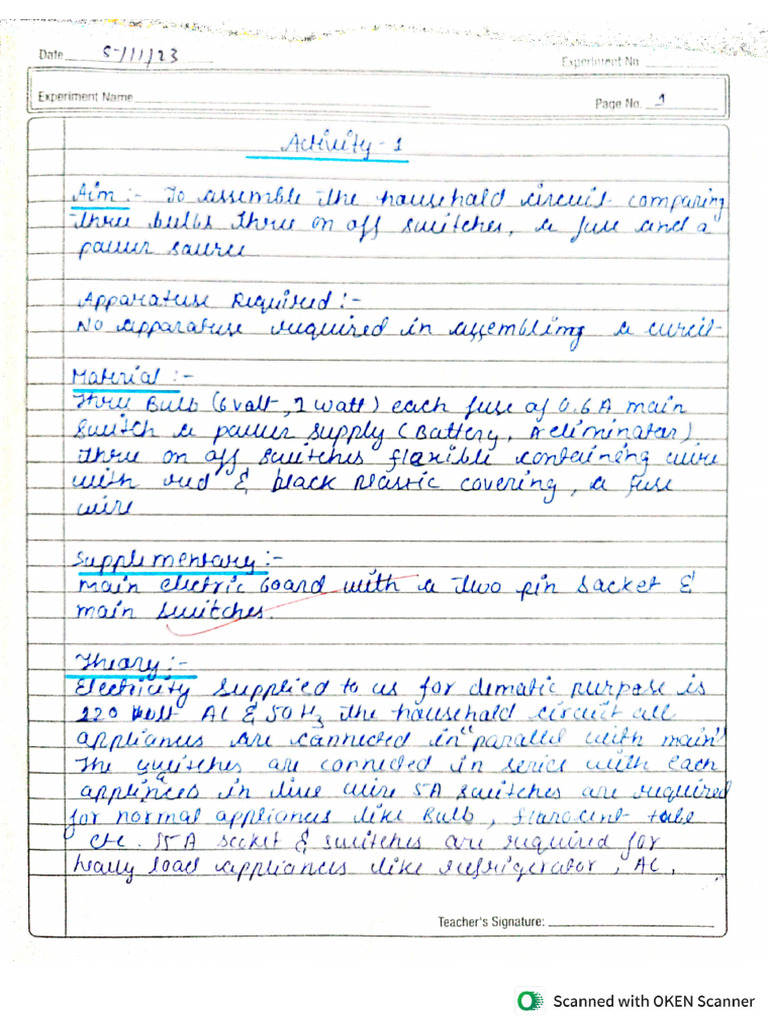 Date 5/11/23
Experiment No.
Experiment Name
Page No. 1
Activity - 1
Aim :- To assemble the household circuit comparing
three bulbs three on off switches, a fuse and a
power source
Apparatuse Required :-
No apparatuse required in assembling a curcit
Material :-
Three Bulb (6 volt, 1 watt) each fuse of 0.6 A main
switch a power supply (Battery, A eliminator)
three on off switches flexible containing wire
with red & black plastic covering, a fuse
wire
Supplementary :-
main electric board with a two pin socket &
main switches.
Theory :-
Electricity supplied to us for dematic purpose is
220 volt AC & 50 Hz the household circuit all
appliances are connected in "parallel with main"
The switches are connected in series with each
applinces in live wire 5A switches are required
for normal appliances like Bulb, floracent tube
etc. 15 A socket & switches are required for
heavy load appliances like refrigerator, AC,
Teacher's Signature:
Scanned with OKEN Scanner